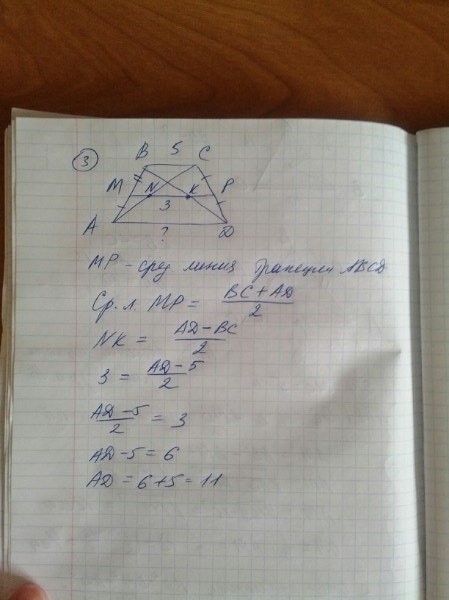 3
B 5 C
M N K P
3
A ? D
MP - сред линия трапеции ABCD
Ср. л. MP = BC + AD / 2
NK = AD - BC / 2
3 = AD - 5 / 2
AD - 5 / 2 = 3
AD - 5 = 6
AD = 6 + 5 = 11